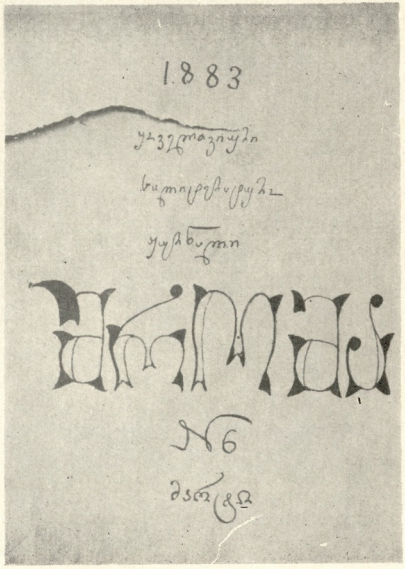 1883
ყოველთვიური
სალიტერატურო
ჟურნალი
შრომა
№ 6
მარტი